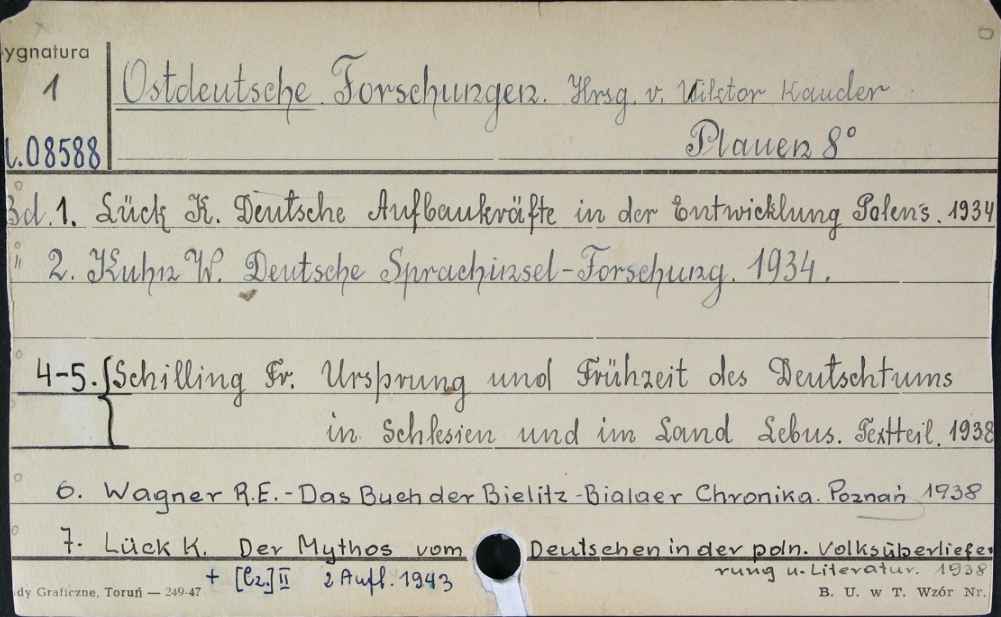 ygnatura
1
Ostdeutsche Forschungen. Hrsg. v. Viktor Kauder
08588
Plauen 8°
Bd. 1. Lück K. Deutsche Aufbaukräfte in der Entwicklung Polen's. 1934
" 2. Kuhn W. Deutsche Sprachinsel-Forschung. 1934.
4-5. Schilling Fr. Ursprung und Frühzeit des Deutschtums
in Schlesien und im Land Lebus. Textteil. 1938
6. Wagner R.E. - Das Buch der Bielitz-Bialaer Chronika. Poznań 1938
7. Lück K. Der Mythos vom Deutschen in der poln. Volksüberliefe
rung u. Literatur. 1938
+ [Cz.] II 2 Aufl. 1943
dy Graficzne, Toruń — 249-47
B. U. w T. Wzór Nr.